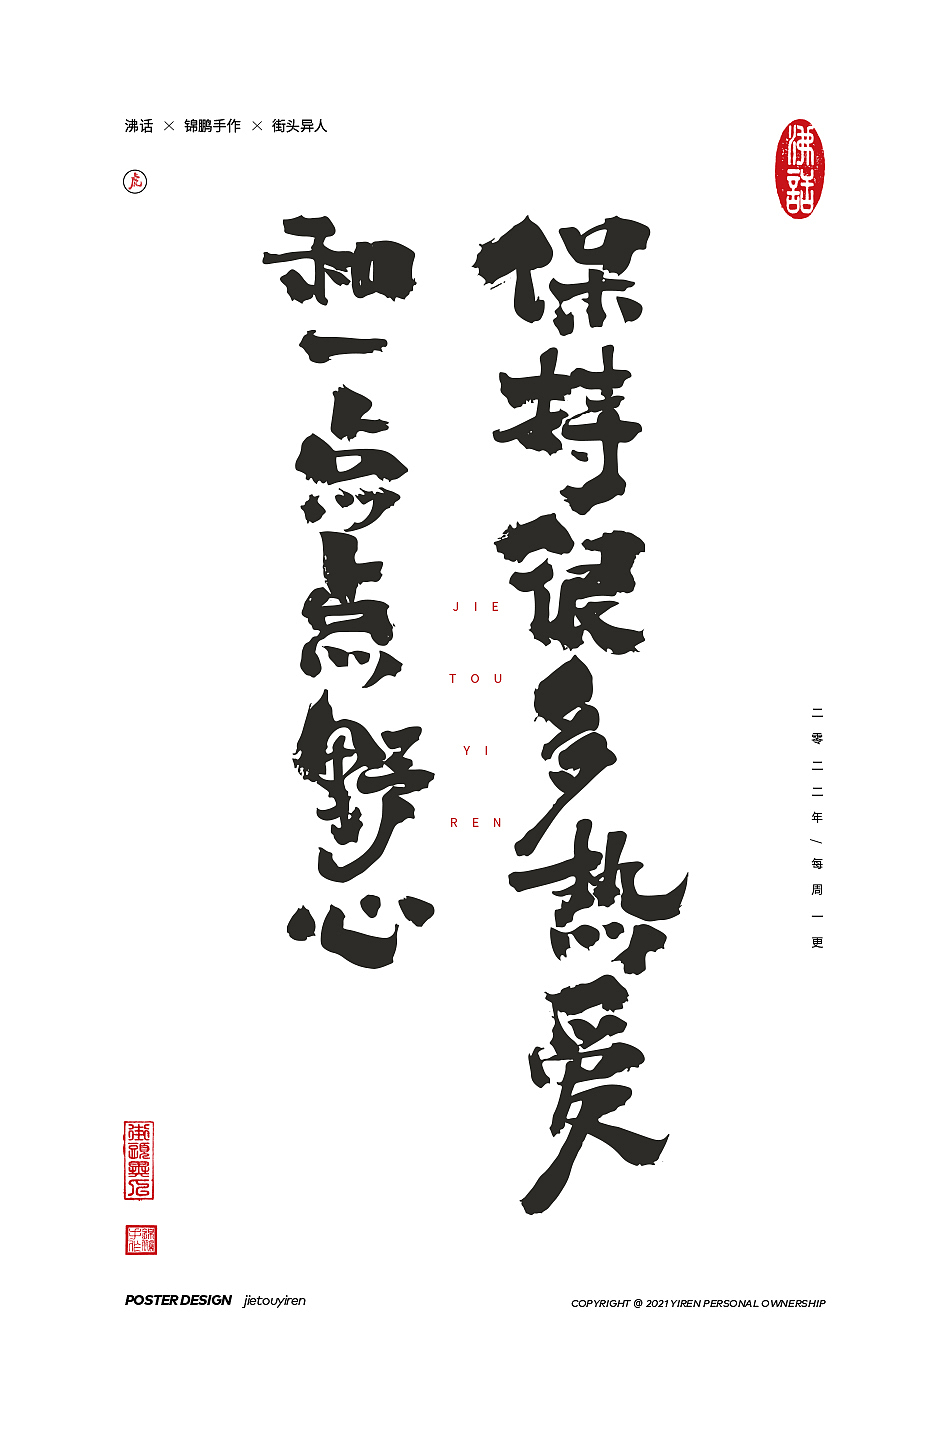 沸话 × 锦鹏手作 × 街头异人
虎
沸話
保持很多热爱
和一点点野心
JIE
TOU
YI
REN
二零二二年/每周一更
街頭異人
POSTER DESIGN jietouyiren
COPYRIGHT @ 2021 YIREN PERSONAL OWNERSHIP